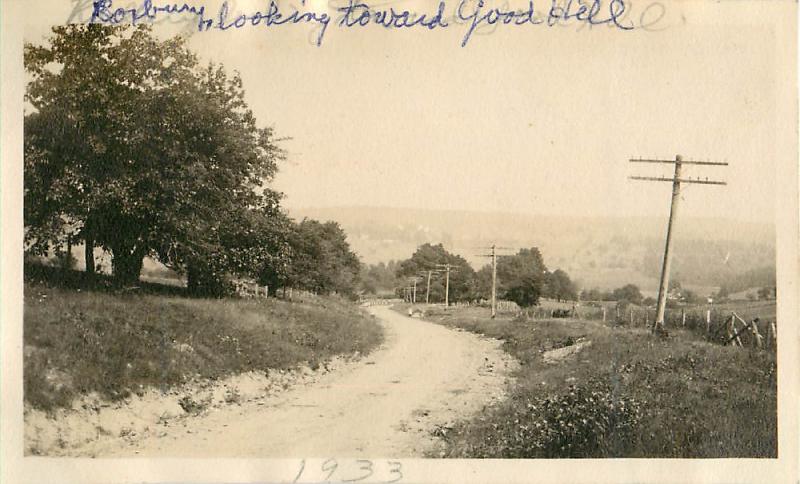 Roxbury, looking toward Good Hill
1933